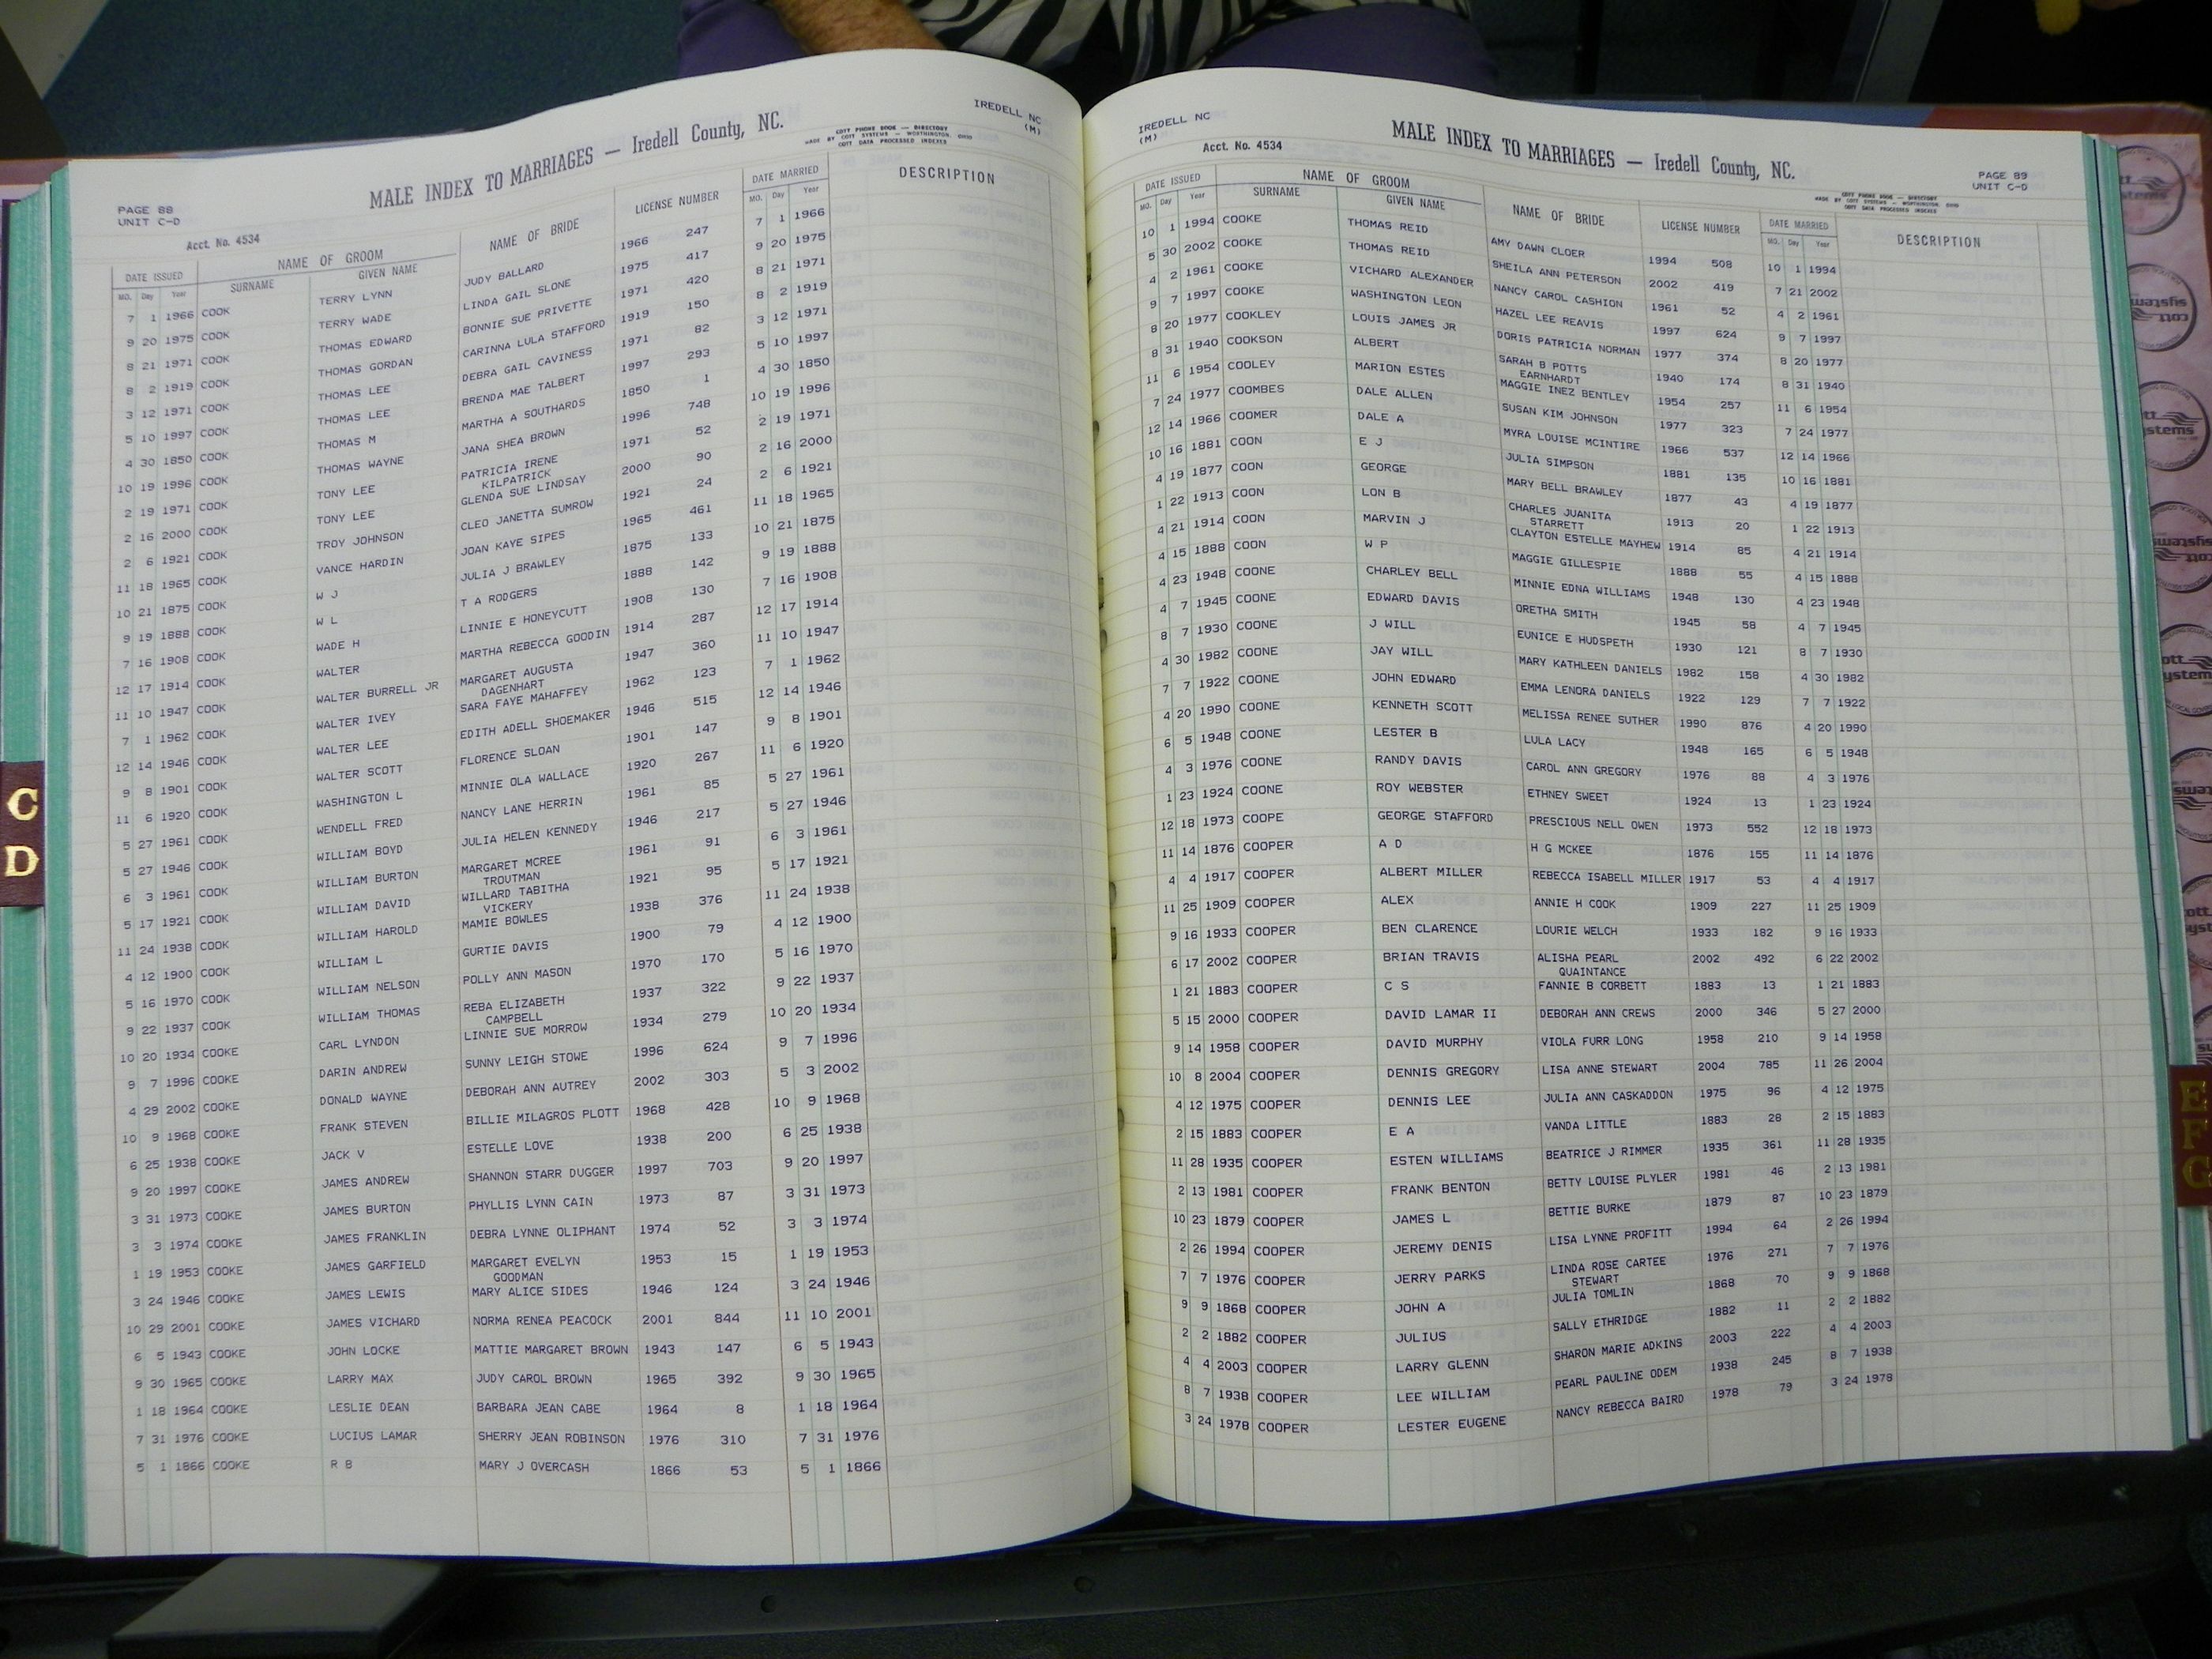 PAGE 88
UNIT C-D
Acct. No. 4534
MALE INDEX TO MARRIAGES — Iredell County, NC.
COTT PHONE BOOK — DIRECTORY
MADE BY COTT SYSTEMS — WORTHINGTON, OHIO
COTT DATA PROCESSED INDEXES
IREDELL NC
(M)
DATE ISSUED NAME OF GROOM NAME OF BRIDE LICENSE NUMBER DATE MARRIED DESCRIPTION
MO. Day Year SURNAME GIVEN NAME MO. Day Year
7 1 1966 COOK TERRY LYNN JUDY BALLARD 1966 247 7 1 1966
9 20 1975 COOK TERRY WADE LINDA GAIL SLONE 1975 417 9 20 1975
8 21 1971 COOK THOMAS EDWARD BONNIE SUE PRIVETTE 1971 420 8 21 1971
8 2 1919 COOK THOMAS GORDAN CARINNA LULA STAFFORD 1919 150 8 2 1919
3 12 1971 COOK THOMAS LEE DEBRA GAIL CAVINESS 1971 82 3 12 1971
5 10 1997 COOK THOMAS LEE BRENDA MAE TALBERT 1997 293 5 10 1997
4 30 1850 COOK THOMAS M MARTHA A SOUTHARDS 1850 1 4 30 1850
10 19 1996 COOK THOMAS WAYNE JANA SHEA BROWN 1996 748 10 19 1996
2 19 1971 COOK TONY LEE PATRICIA IRENE 1971 52 2 19 1971
KILPATRICK
2 16 2000 COOK TONY LEE GLENDA SUE LINDSAY 2000 90 2 16 2000
2 6 1921 COOK TROY JOHNSON CLEO JANETTA SUMROW 1921 24 2 6 1921
11 18 1965 COOK VANCE HARDIN JOAN KAYE SIPES 1965 461 11 18 1965
10 21 1875 COOK W J JULIA J BRAWLEY 1875 133 10 21 1875
9 19 1888 COOK W L T A RODGERS 1888 142 9 19 1888
7 16 1908 COOK WADE H LINNIE E HONEYCUTT 1908 130 7 16 1908
12 17 1914 COOK WALTER MARTHA REBECCA GOODIN 1914 287 12 17 1914
11 10 1947 COOK WALTER BURRELL JR MARGARET AUGUSTA 1947 360 11 10 1947
DAGENHART
7 1 1962 COOK WALTER IVEY SARA FAYE MAHAFFEY 1962 123 7 1 1962
12 14 1946 COOK WALTER LEE EDITH ADELL SHOEMAKER 1946 515 12 14 1946
9 8 1901 COOK WALTER SCOTT FLORENCE SLOAN 1901 147 9 8 1901
11 6 1920 COOK WASHINGTON L MINNIE OLA WALLACE 1920 267 11 6 1920
5 27 1961 COOK WENDELL FRED NANCY LANE HERRIN 1961 85 5 27 1961
5 27 1946 COOK WILLIAM BOYD JULIA HELEN KENNEDY 1946 217 5 27 1946
6 3 1961 COOK WILLIAM BURTON MARGARET MCREE 1961 91 6 3 1961
TROUTMAN
5 17 1921 COOK WILLIAM DAVID WILLARD TABITHA 1921 95 5 17 1921
VICKERY
11 24 1938 COOK WILLIAM HAROLD MAMIE BOWLES 1938 376 11 24 1938
4 12 1900 COOK WILLIAM L GURTIE DAVIS 1900 79 4 12 1900
5 16 1970 COOK WILLIAM NELSON POLLY ANN MASON 1970 170 5 16 1970
9 22 1937 COOK WILLIAM THOMAS REBA ELIZABETH 1937 322 9 22 1937
CAMPBELL
10 20 1934 COOKE CARL LYNDON LINNIE SUE MORROW 1934 279 10 20 1934
9 7 1996 COOKE DARIN ANDREW SUNNY LEIGH STOWE 1996 624 9 7 1996
4 29 2002 COOKE DONALD WAYNE DEBORAH ANN AUTREY 2002 303 5 3 2002
10 9 1968 COOKE FRANK STEVEN BILLIE MILAGROS PLOTT 1968 428 10 9 1968
6 25 1938 COOKE JACK V ESTELLE LOVE 1938 200 6 25 1938
9 20 1997 COOKE JAMES ANDREW SHANNON STARR DUGGER 1997 703 9 20 1997
3 31 1973 COOKE JAMES BURTON PHYLLIS LYNN CAIN 1973 87 3 31 1973
3 3 1974 COOKE JAMES FRANKLIN DEBRA LYNNE OLIPHANT 1974 52 3 3 1974
1 19 1953 COOKE JAMES GARFIELD MARGARET EVELYN 1953 15 1 19 1953
GOODMAN
3 24 1946 COOKE JAMES LEWIS MARY ALICE SIDES 1946 124 3 24 1946
10 29 2001 COOKE JAMES VICHARD NORMA RENEA PEACOCK 2001 844 11 10 2001
6 5 1943 COOKE JOHN LOCKE MATTIE MARGARET BROWN 1943 147 6 5 1943
9 30 1965 COOKE LARRY MAX JUDY CAROL BROWN 1965 392 9 30 1965
1 18 1964 COOKE LESLIE DEAN BARBARA JEAN CABE 1964 8 1 18 1964
7 31 1976 COOKE LUCIUS LAMAR SHERRY JEAN ROBINSON 1976 310 7 31 1976
5 1 1866 COOKE R B MARY J OVERCASH 1866 53 5 1 1866
C
D
IREDELL NC
(M)
Acct. No. 4534
MALE INDEX TO MARRIAGES — Iredell County, NC.
PAGE 89
UNIT C-D
COTT PHONE BOOK — DIRECTORY
MADE BY COTT SYSTEMS — WORTHINGTON, OHIO
COTT DATA PROCESSED INDEXES
DATE ISSUED NAME OF GROOM NAME OF BRIDE LICENSE NUMBER DATE MARRIED DESCRIPTION
MO. Day Year SURNAME GIVEN NAME MO. Day Year
10 1 1994 COOKE THOMAS REID AMY DAWN CLOER 1994 508 10 1 1994
5 30 2002 COOKE THOMAS REID SHEILA ANN PETERSON 2002 419 7 21 2002
4 2 1961 COOKE VICHARD ALEXANDER NANCY CAROL CASHION 1961 52 4 2 1961
9 7 1997 COOKE WASHINGTON LEON HAZEL LEE REAVIS 1997 624 9 7 1997
8 20 1977 COOKLEY LOUIS JAMES JR DORIS PATRICIA NORMAN 1977 374 8 20 1977
8 31 1940 COOKSON ALBERT SARAH B POTTS 1940 174 8 31 1940
EARNHARDT
11 6 1954 COOLEY MARION ESTES MAGGIE INEZ BENTLEY 1954 257 11 6 1954
7 24 1977 COOMBES DALE ALLEN SUSAN KIM JOHNSON 1977 323 7 24 1977
12 14 1966 COOMER DALE A MYRA LOUISE MCINTIRE 1966 537 12 14 1966
10 16 1881 COON E J JULIA SIMPSON 1881 135 10 16 1881
4 19 1877 COON GEORGE MARY BELL BRAWLEY 1877 43 4 19 1877
1 22 1913 COON LON B CHARLES JUANITA 1913 20 1 22 1913
STARRETT
4 21 1914 COON MARVIN J CLAYTON ESTELLE MAYHEW 1914 85 4 21 1914
4 15 1888 COON W P MAGGIE GILLESPIE 1888 55 4 15 1888
4 23 1948 COONE CHARLEY BELL MINNIE EDNA WILLIAMS 1948 130 4 23 1948
4 7 1945 COONE EDWARD DAVIS ORETHA SMITH 1945 58 4 7 1945
8 7 1930 COONE J WILL EUNICE E HUDSPETH 1930 121 8 7 1930
4 30 1982 COONE JAY WILL MARY KATHLEEN DANIELS 1982 158 4 30 1982
7 7 1922 COONE JOHN EDWARD EMMA LENORA DANIELS 1922 129 7 7 1922
4 20 1990 COONE KENNETH SCOTT MELISSA RENEE SUTHER 1990 876 4 20 1990
6 5 1948 COONE LESTER B LULA LACY 1948 165 6 5 1948
4 3 1976 COONE RANDY DAVIS CAROL ANN GREGORY 1976 88 4 3 1976
1 23 1924 COONE ROY WEBSTER ETHNEY SWEET 1924 13 1 23 1924
12 18 1973 COOPE GEORGE STAFFORD PRESCIOUS NELL OWEN 1973 552 12 18 1973
11 14 1876 COOPER A D H G MCKEE 1876 155 11 14 1876
4 4 1917 COOPER ALBERT MILLER REBECCA ISABELL MILLER 1917 53 4 4 1917
11 25 1909 COOPER ALEX ANNIE H COOK 1909 227 11 25 1909
9 16 1933 COOPER BEN CLARENCE LOURIE WELCH 1933 182 9 16 1933
6 17 2002 COOPER BRIAN TRAVIS ALISHA PEARL 2002 492 6 22 2002
QUAINTANCE
1 21 1883 COOPER C S FANNIE B CORBETT 1883 13 1 21 1883
5 15 2000 COOPER DAVID LAMAR II DEBORAH ANN CREWS 2000 346 5 27 2000
9 14 1958 COOPER DAVID MURPHY VIOLA FURR LONG 1958 210 9 14 1958
10 8 2004 COOPER DENNIS GREGORY LISA ANNE STEWART 2004 785 11 26 2004
4 12 1975 COOPER DENNIS LEE JULIA ANN CASKADDON 1975 96 4 12 1975
2 15 1883 COOPER E A VANDA LITTLE 1883 28 2 15 1883
11 28 1935 COOPER ESTEN WILLIAMS BEATRICE J RIMMER 1935 361 11 28 1935
2 13 1981 COOPER FRANK BENTON BETTY LOUISE PLYLER 1981 46 2 13 1981
10 23 1879 COOPER JAMES L BETTIE BURKE 1879 87 10 23 1879
2 26 1994 COOPER JEREMY DENIS LISA LYNNE PROFITT 1994 64 2 26 1994
7 7 1976 COOPER JERRY PARKS LINDA ROSE CARTEE 1976 271 7 7 1976
STEWART
9 9 1868 COOPER JOHN A JULIA TOMLIN 1868 70 9 9 1868
2 2 1882 COOPER JULIUS SALLY ETHRIDGE 1882 11 2 2 1882
4 4 2003 COOPER LARRY GLENN SHARON MARIE ADKINS 2003 222 4 4 2003
8 7 1938 COOPER LEE WILLIAM PEARL PAULINE ODEM 1938 245 8 7 1938
3 24 1978 COOPER LESTER EUGENE NANCY REBECCA BAIRD 1978 79 3 24 1978
E
F
G